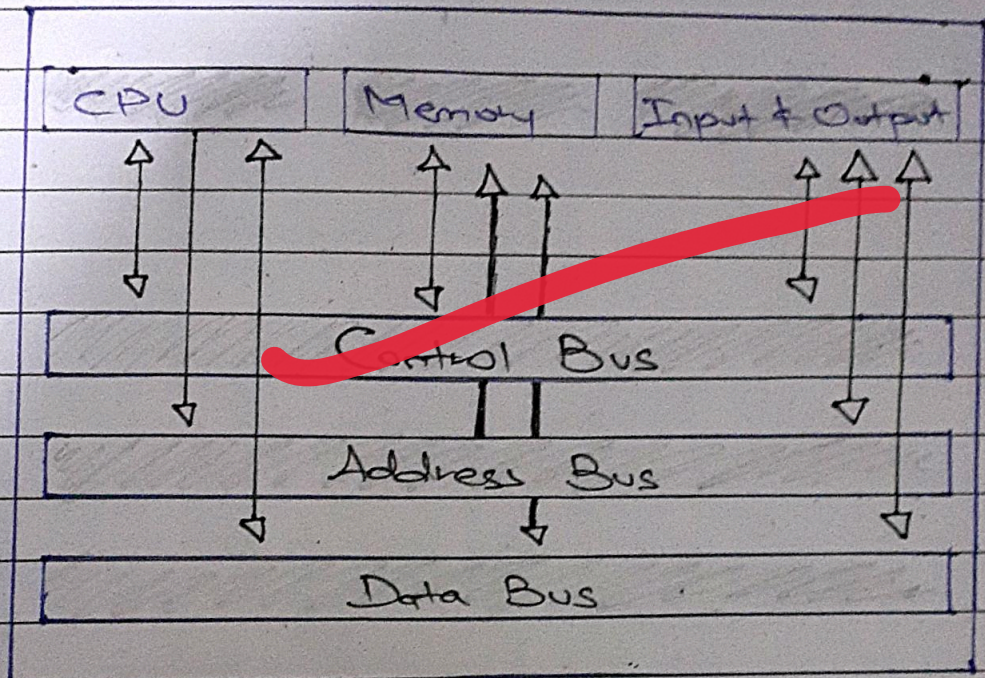 CPU
Memory
Input & Output
Control Bus
Address Bus
Data Bus